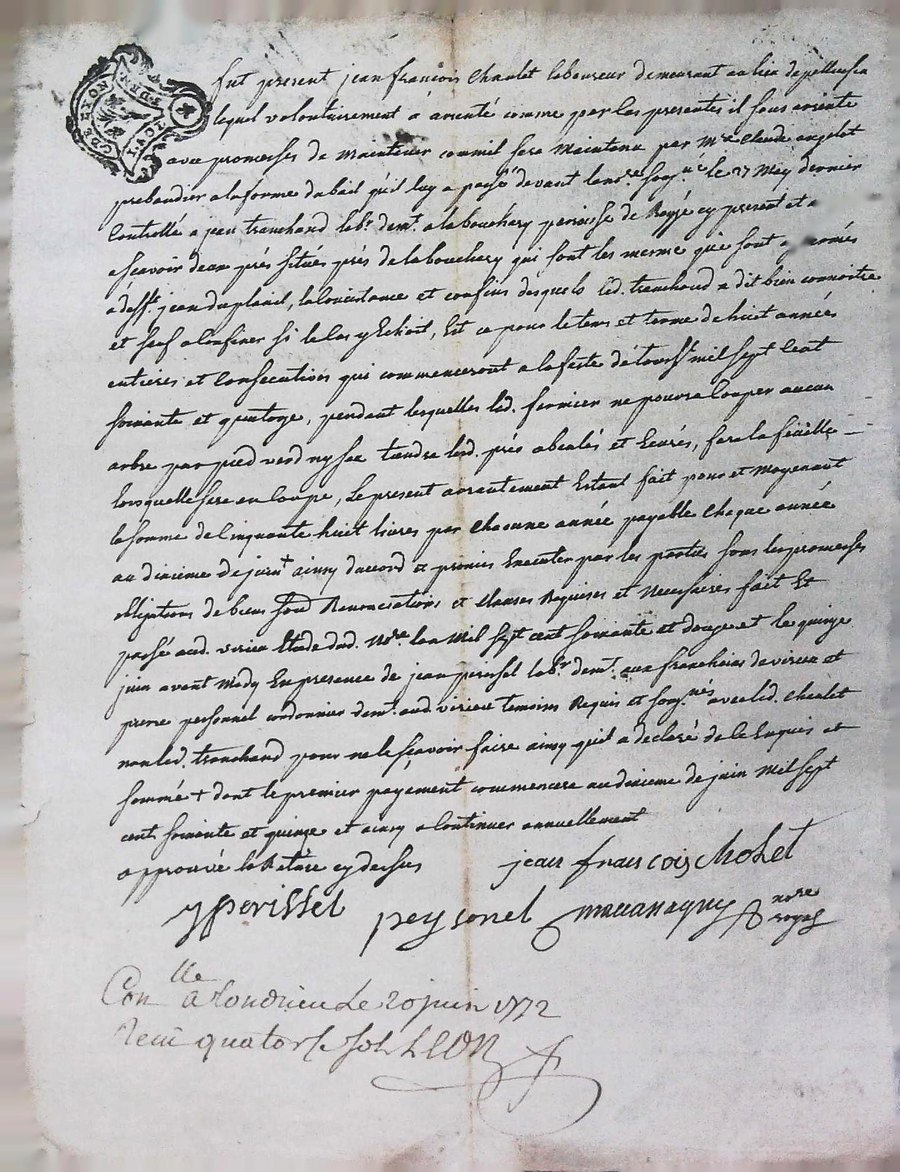 GRE LYON
fut present jean françois Chaulet laboureur demeurant au lieu de
lequel volontairement a arrenté comme par les presentes il sous arrente
avec promesses de maintenir comme il sera maintenu par Mre Claude
prebandier a la forme du bail qu'il luy a passé devant le nre soussné le 27 May dernier
Controllé a jean tranchand labr demt a la bouchery paroisse de cy present et a
Scavoir deux prés situés près de la bouchery qui sont les meme que sont
a defft jean duplanil, la consistance et confins desquels led. tranchand a dit bien connoitre
et sauf a confiner si le cas y Echoit, Est ce pour le tems et terme de huit années
entieres et Consecutives qui commenceront a la feste de touss.t mil sept Cent
soixante et quatorze, pendant lesquelles led. fermier ne pourra Couper aucun
arbre par pied verd ny sec tiendra lesd. prés et fera la feuille
lorsquelle sera en Coupe, Le present arrantement Estant fait pour et Moyenant
la somme de Cinquante huit livres par Chacune année payable Chaque année
au dixieme de juin ainsy d'accord et promis Executer par les parties sous les promesses
obligations de biens Renonciations et Clauses Requises et Necessaires fait Et
passé aud. virieu Etude dud. Nore Lan Mil Sept cent soixante et douze et le quinze
juin avant Midy En presence de jean perissel labr demt aux franchises de virieu et
pierre personnel cordonnier demt aud. virieu temoins Requis et soussnés avec led. Chaulet
non led. tranchand pour ne le scavoir faire ainsy qu'il a declaré de ce Enquis et
sommé + dont le premier payement commencera au dixieme de juin Mil sept
cent soixante et quinze et ainsy a Continuer annuellement
approuvé la Rature cy dessus
jean françois cholet
j perissel peysonel nore royal
Conlle a Condrieu Le 20 juin 1772
Reçu quatorse sols LEON